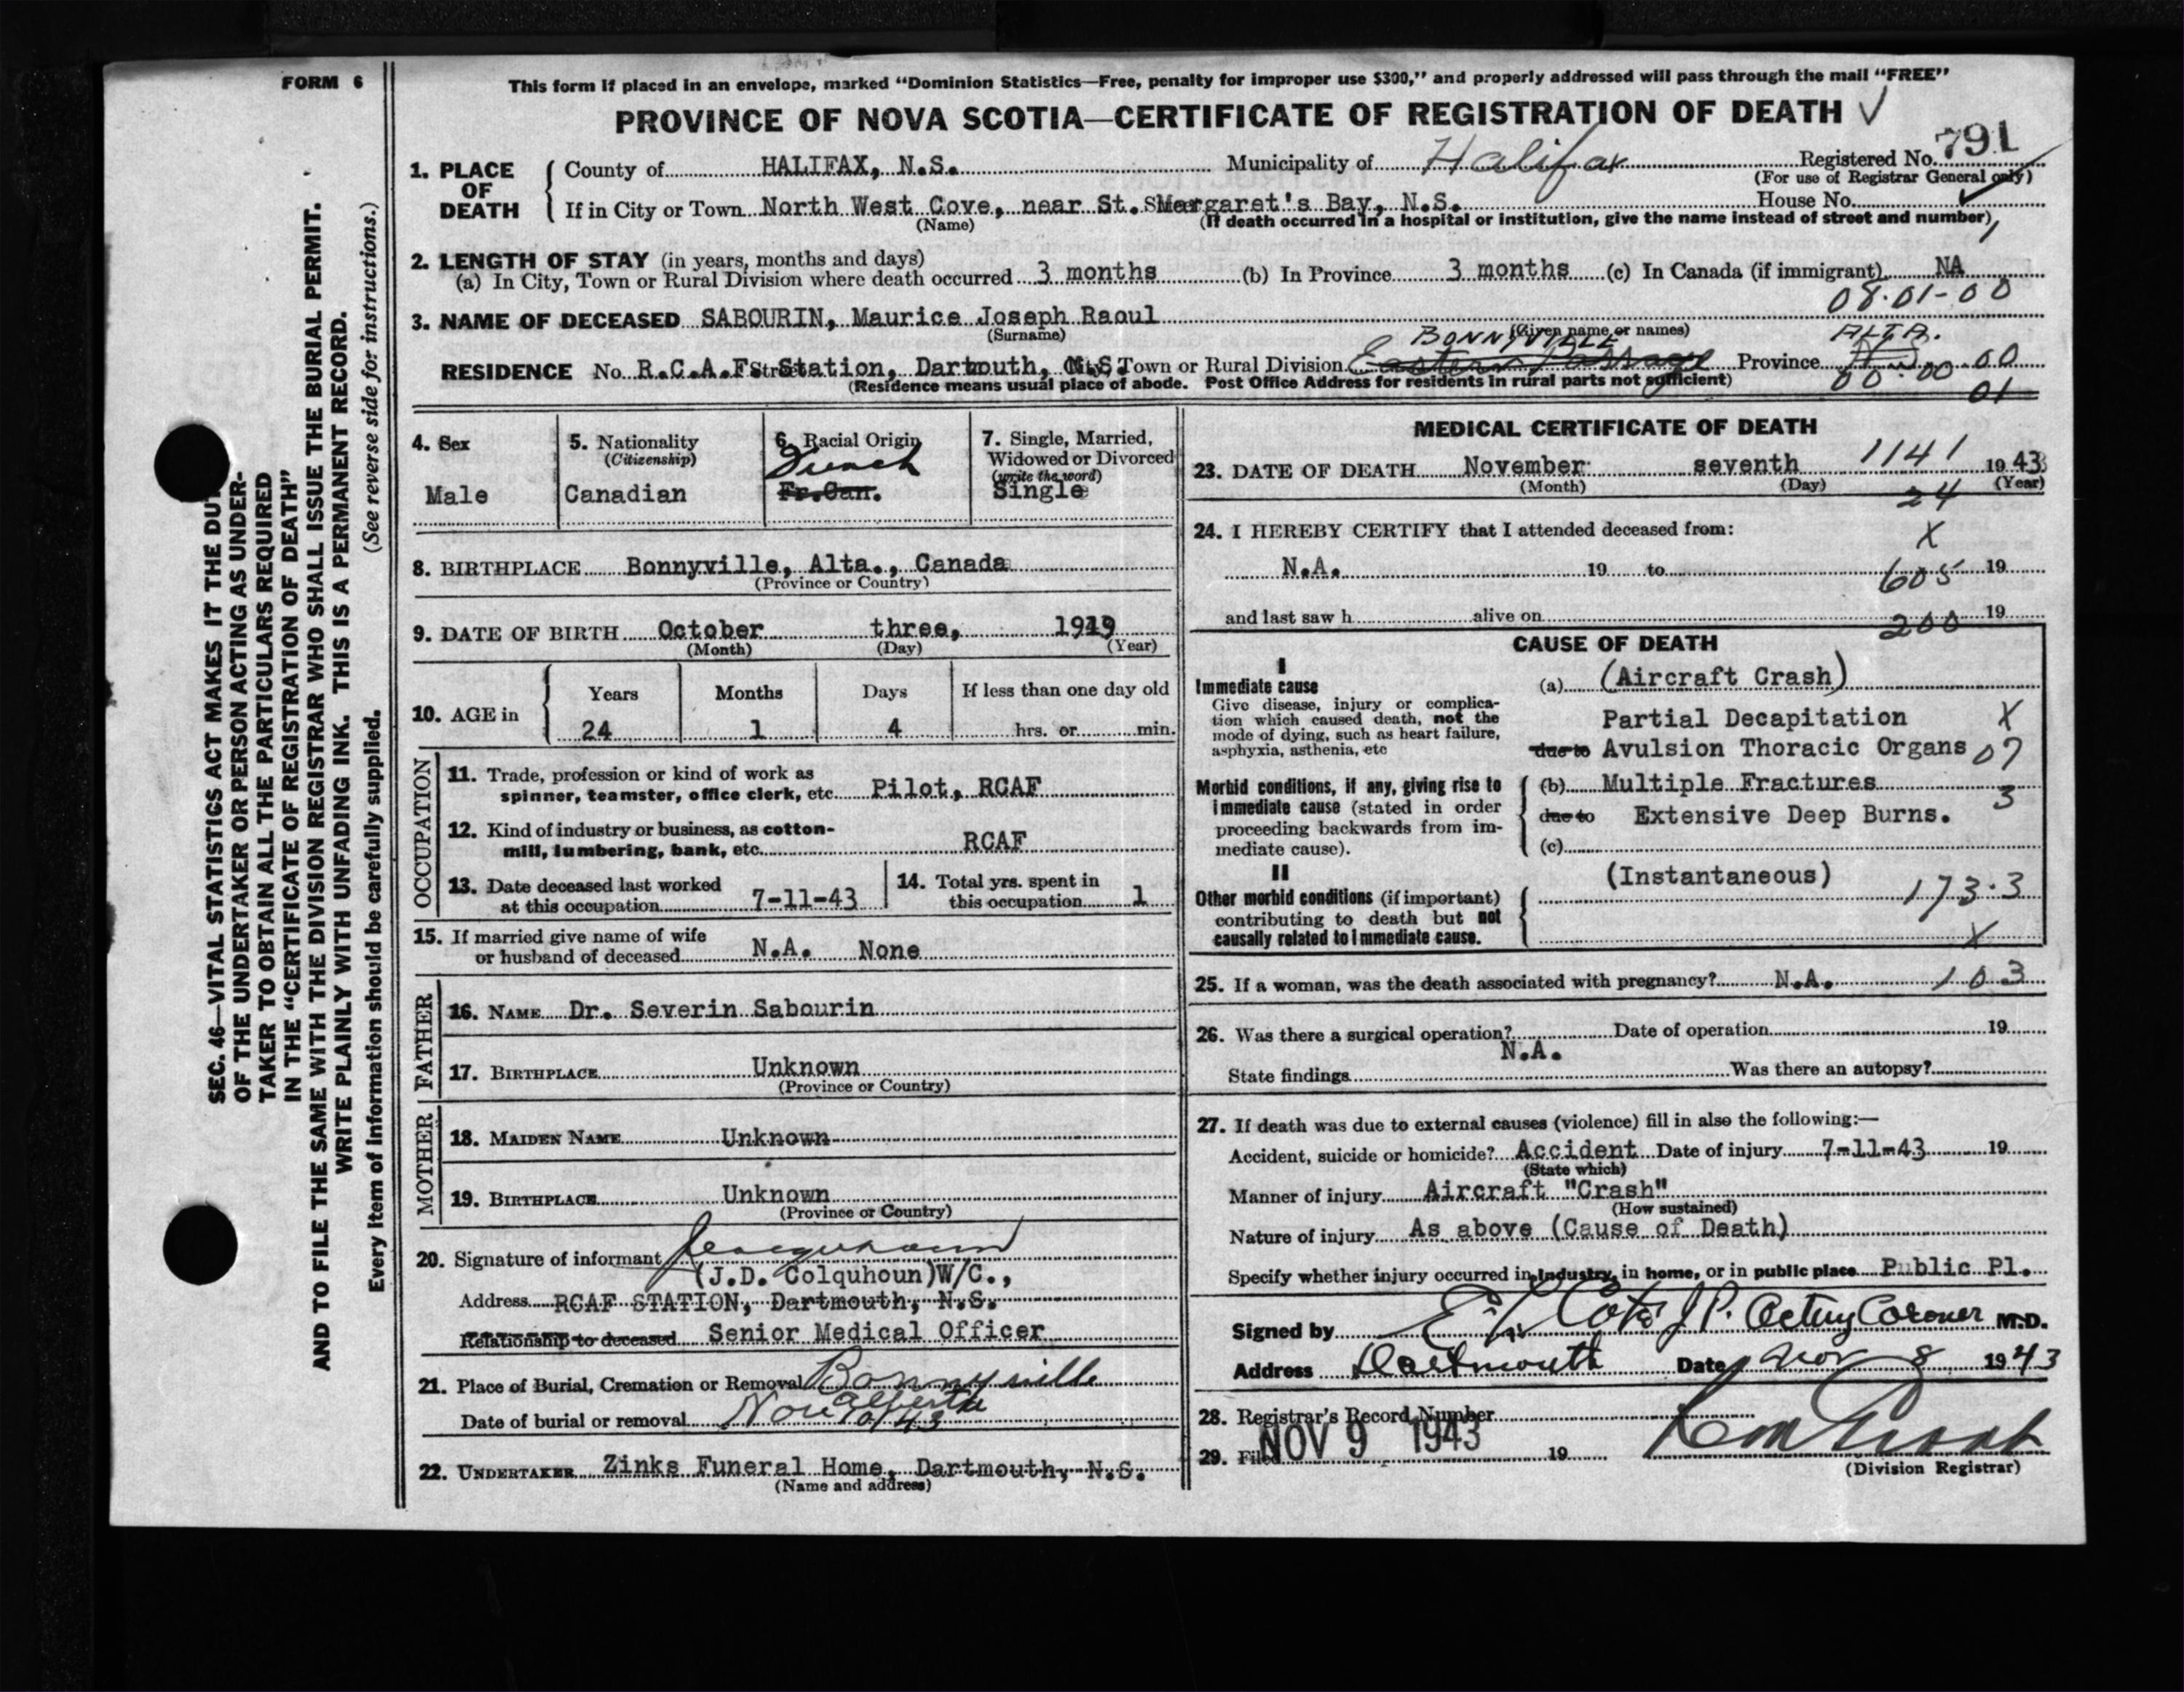 FORM 6
This form if placed in an envelope, marked "Dominion Statistics—Free, penalty for improper use $300," and properly addressed will pass through the mail "FREE"
PROVINCE OF NOVA SCOTIA—CERTIFICATE OF REGISTRATION OF DEATH
SEC. 46—VITAL STATISTICS ACT MAKES IT THE DUTY
OF THE UNDERTAKER OR PERSON ACTING AS UNDER-
TAKER TO OBTAIN ALL THE PARTICULARS REQUIRED
IN THE "CERTIFICATE OF REGISTRATION OF DEATH"
AND TO FILE THE SAME WITH THE DIVISION REGISTRAR WHO SHALL ISSUE THE BURIAL PERMIT.
WRITE PLAINLY WITH UNFADING INK. THIS IS A PERMANENT RECORD.
Every item of information should be carefully supplied. (See reverse side for instructions.)
1. PLACE OF DEATH
County of HALIFAX, N.S. Municipality of Halifax Registered No. 791
(For use of Registrar General only)
If in City or Town North West Cove, near St. Margaret's Bay, N.S. House No.
(Name) (If death occurred in a hospital or institution, give the name instead of street and number)
2. LENGTH OF STAY (in years, months and days)
(a) In City, Town or Rural Division where death occurred 3 months (b) In Province 3 months (c) In Canada (if immigrant) NA
08.01-00
3. NAME OF DECEASED SABOURIN, Maurice Joseph Raoul
(Surname) (Given name or names)
BONNYVILLE ALTA.
RESIDENCE No. R.C.A.F. Station, Dartmouth, N.S. Town or Rural Division Eastern Passage Province
00.00.00
(Residence means usual place of abode. Post Office Address for residents in rural parts not sufficient)
01
4. Sex
Male
5. Nationality
(Citizenship)
Canadian
6. Racial Origin
French
Fr.Can.
7. Single, Married,
Widowed or Divorced
(write the word)
Single
8. BIRTHPLACE Bonnyville, Alta., Canada
(Province or Country)
9. DATE OF BIRTH October three, 1919
(Month) (Day) (Year)
10. AGE in
Years Months Days If less than one day old
24 1 4 hrs. or min.
OCCUPATION
11. Trade, profession or kind of work as
spinner, teamster, office clerk, etc. Pilot, RCAF
12. Kind of industry or business, as cotton-
mill, lumbering, bank, etc. RCAF
13. Date deceased last worked
at this occupation 7-11-43
14. Total yrs. spent in
this occupation 1
15. If married give name of wife
or husband of deceased N.A. None
FATHER
16. NAME Dr. Severin Sabourin
17. BIRTHPLACE Unknown
(Province or Country)
MOTHER
18. MAIDEN NAME Unknown
19. BIRTHPLACE Unknown
(Province or Country)
20. Signature of informant
(J.D. Colquhoun)W/C.,
Address RCAF STATION, Dartmouth, N.S.
Relationship to deceased Senior Medical Officer
21. Place of Burial, Cremation or Removal Bonnyville
Alberta
Date of burial or removal Nov 10/43
22. UNDERTAKER Zinks Funeral Home, Dartmouth, N.S.
(Name and address)
MEDICAL CERTIFICATE OF DEATH
1141
23. DATE OF DEATH November seventh 1943
(Month) (Day) (Year)
24
24. I HEREBY CERTIFY that I attended deceased from:
X
N.A. 19 to 19
605
and last saw h alive on 19
200
CAUSE OF DEATH
I
Immediate cause
Give disease, injury or complica-
tion which caused death, not the
mode of dying, such as heart failure,
asphyxia, asthenia, etc
(a) (Aircraft Crash)
Partial Decapitation X
due to Avulsion Thoracic Organs 07
Morbid conditions, if any, giving rise to
immediate cause (stated in order
proceeding backwards from im-
mediate cause).
(b) Multiple Fractures
3
due to Extensive Deep Burns.
(c)
II
Other morbid conditions (if important)
contributing to death but not
causally related to immediate cause.
(Instantaneous)
173.3
X
25. If a woman, was the death associated with pregnancy? N.A. 103
26. Was there a surgical operation? Date of operation 19
N.A.
State findings Was there an autopsy?
27. If death was due to external causes (violence) fill in also the following:—
Accident, suicide or homicide? Accident Date of injury 7-11-43 19
(State which)
Manner of injury Aircraft "Crash"
(How sustained)
Nature of injury As above (Cause of Death)
Specify whether injury occurred in industry, in home, or in public place Public Pl.
Signed by J.P. Acting Coroner M.D.
Address Dartmouth Date Nov 8 1943
28. Registrar's Record Number
29. Filed NOV 9 1943 19
(Division Registrar)